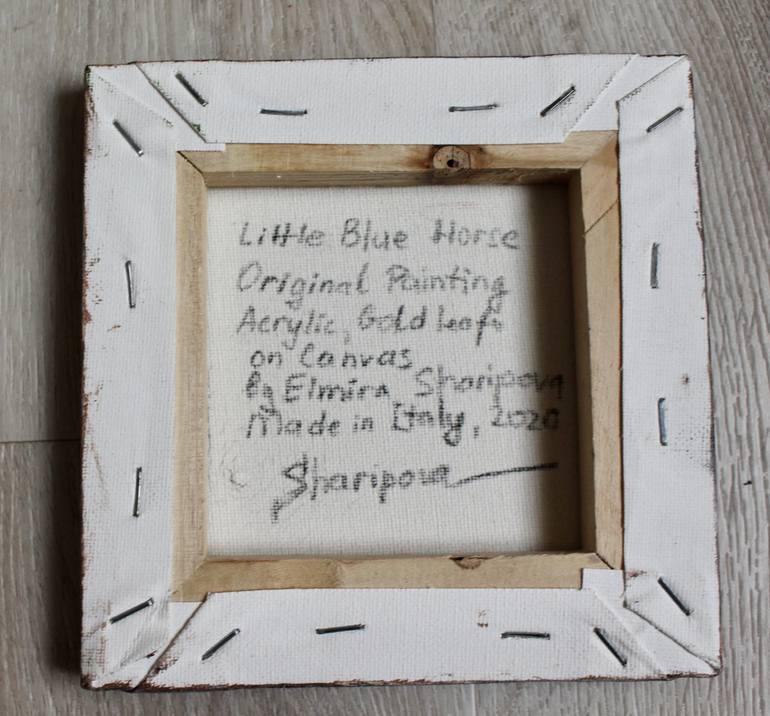 Little Blue Horse
Original Painting
Acrylic, Gold Leaf
on Canvas
by Elmira Sharipova
Made in Italy, 2020
Sharipova